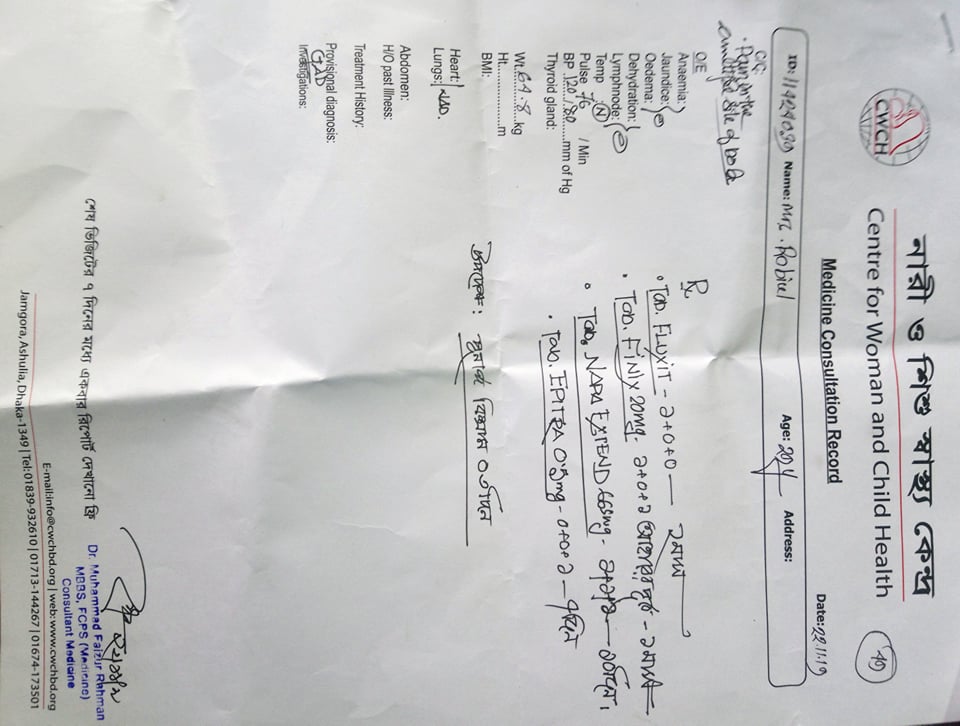 নারী ও শিশু স্বাস্থ্য কেন্দ্র
CWCH
Centre for Woman and Child Health
Medicine Consultation Record
Date: 22.11.19
ID: Name: Robiul Age: Address:
C/C:
Pain in the
multiple site of
O/E
Anaemia:
Jaundice:
Oedema:
Dehydration:
Lymphnode:
Temp N
Pulse 76 / Min
BP 120/80 mm of Hg
Thyroid gland:
Wt. 64.8 kg
Ht. m
BMI:
Heart:
Lungs: NAD.
Abdomen:
H/O past Illness:
Treatment History:
Provisional diagnosis:
GAD
Investigations:
Rx
Tab. FLUXIT - ১+০+০ —
Tab. FINIX 20mg - ১+০+১
Tab. NAPA EXTEND 665mg - ১+১+১ — ১০দিন।
Tab. EPITRA 0.5mg - ০+০+১ — ৭দিন
উপদেশ: বিশ্রাম
Dr. Muhammad Faizur Rahman
MBBS, FCPS (Medicine)
Consultant Medicine
শেষ ভিজিটের ৭ দিনের মধ্যে একবার রিপোর্ট দেখানো ফ্রি
E-mail:info@cwchbd.org | web: www.cwchbd.org
Jamgora, Ashulia, Dhaka-1349 | Tel: 01839-932610 | 01713-144267 | 01674-173501